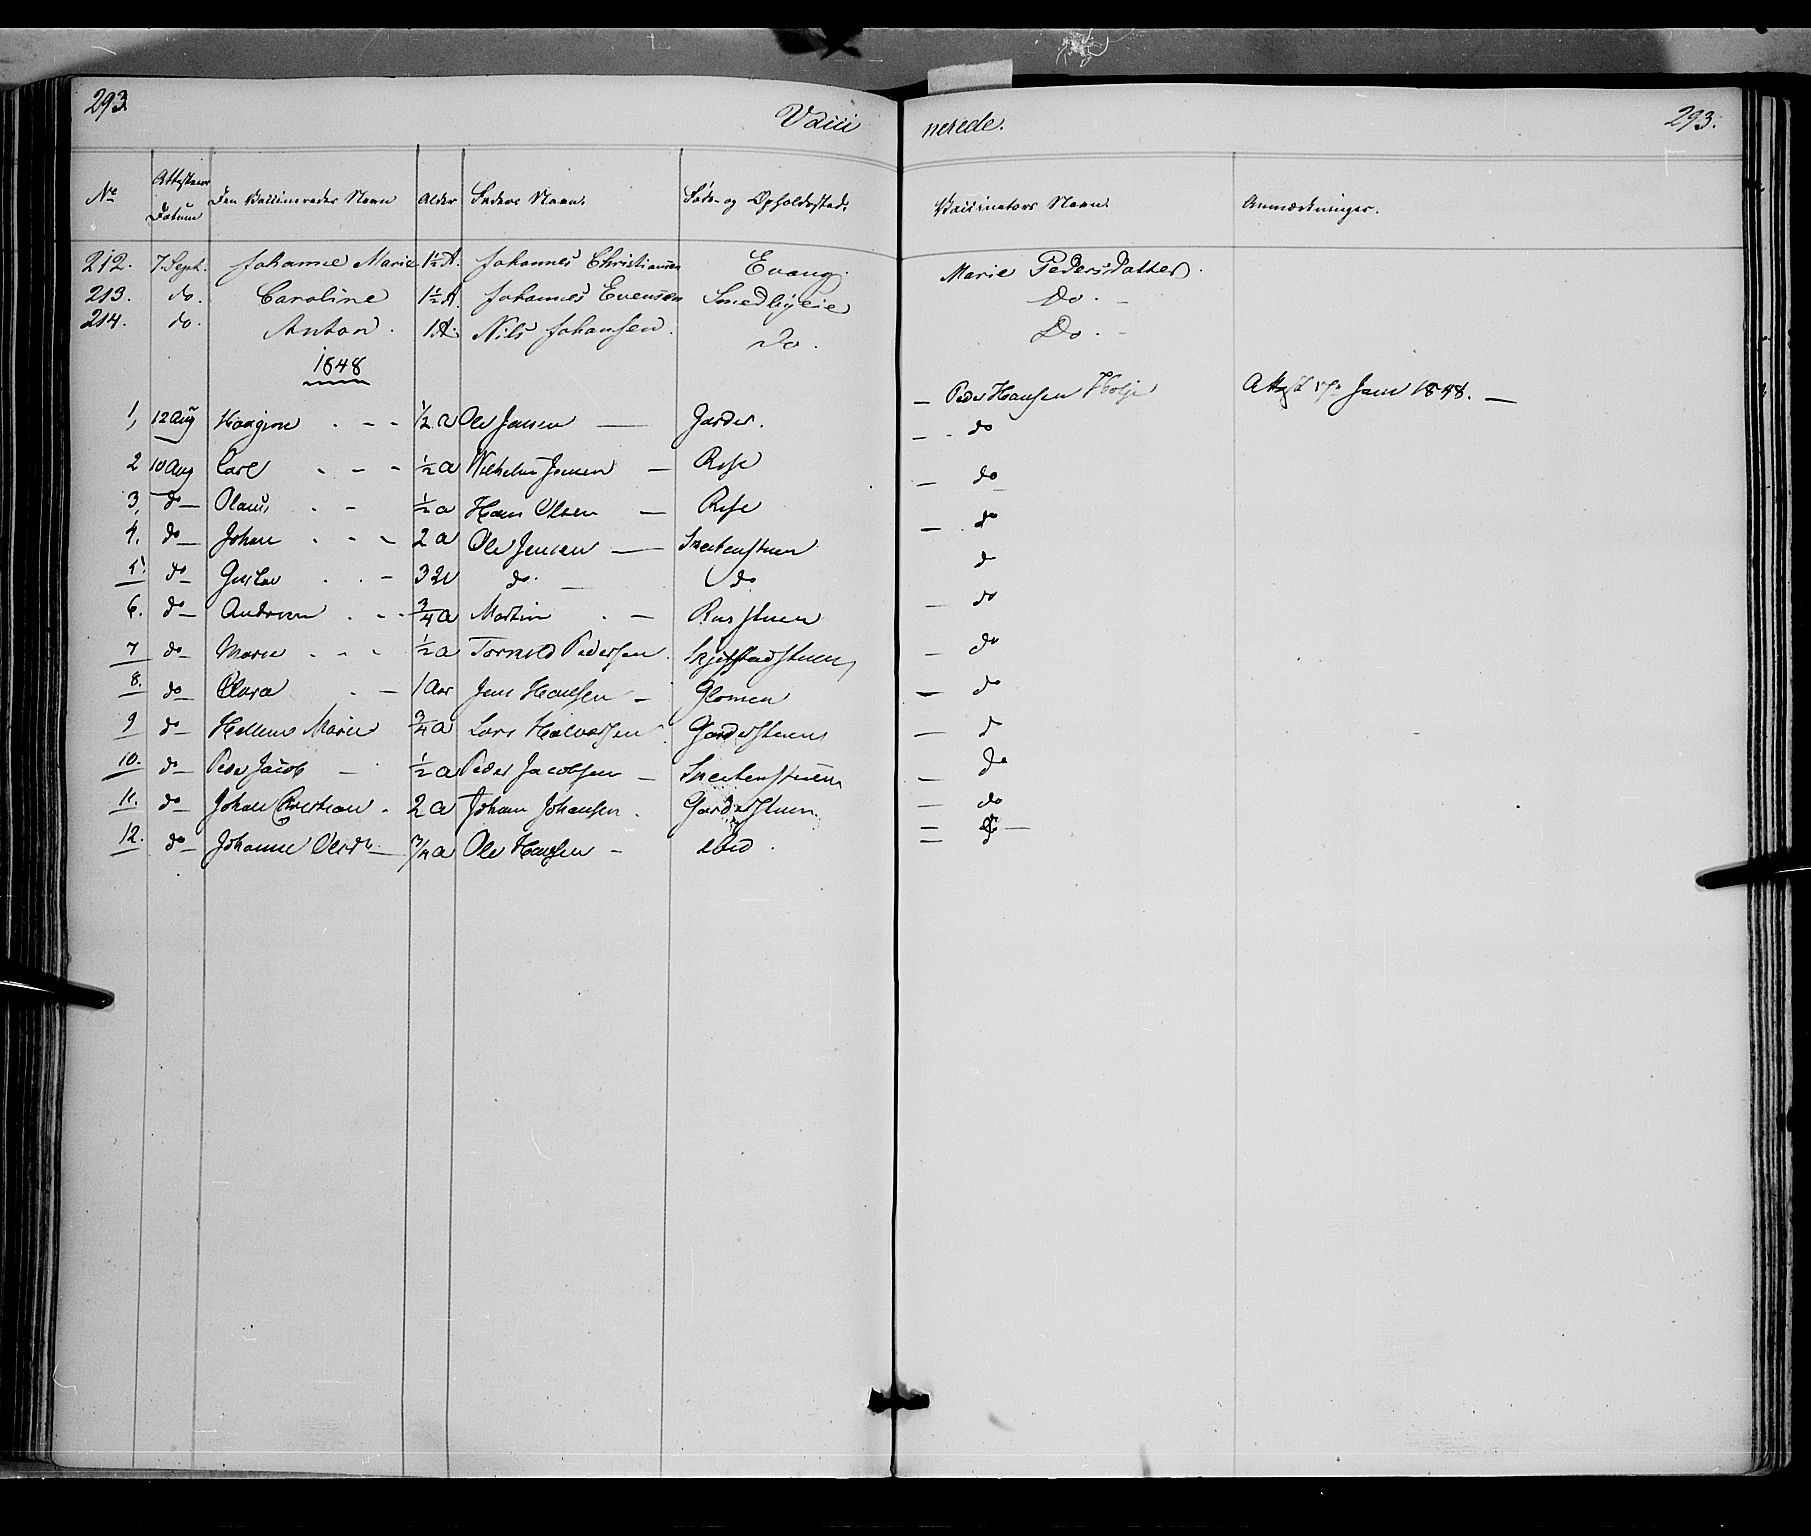 293. Vacci nerede. 293.
No Attestens Datum Den Vaccineredes Navn Alder Faders Navn. Føde- og Opholdssted. Vaccinators Navn. Anmærkninger.
212. 7 Sept. Johanne Marie 1½ A. Johannes Christiansen Evang. Marie Pedersdatter.
213. do. Caroline 1½ A. Johannes Evensen Smedbyeie Do. —
214. do. Anton. 1 A. Nils Johansen. Do. Do. —
1848
1, 12 Aug Haagine . - - ½ a Ole Jensen — Garder. — Peder Hansen Attest Jan 1848. —
2 10 Aug Carl . - - ½ a Wilhelm Jensen — Rise — - do
3, do — Olaus . - ½ a Hans Olsen — Rise — do
4. do — Johan . - - 2 a Ole Jensen — — . do
5. do — Gustav . . - 3 a do. — do d
6. do — . - - ¾ a Martin . — — do
7 do — Marie . - - ½ a Pedersen — do
8. do — Clara . — 1 Aar Jens Hansen — Glomen — do
9 do — Hellene Marie ¾ a Lars Halvorsen Garderstuen — d
10. do — Peder Jacob — ½ a Peder Jacobsen — — do
11. do — Johan Christian . 2 a Johan Johansen . Garderstuen — do
12. do — Johanne Olsdr — ¾ a Ole Hansen — ibid .